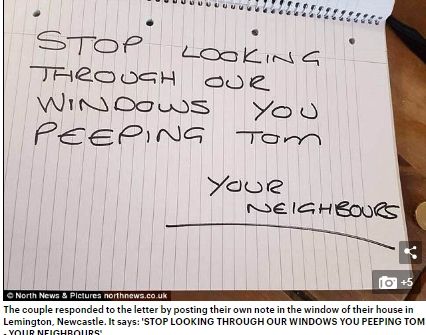 STOP LOOKING
THROUGH OUR
WINDOWS YOU
PEEPING TOM
YOUR
NEIGHBOURS
+5
© North News & Pictures northnews.co.uk
The couple responded to the letter by posting their own note in the window of their house in
Lemington, Newcastle. It says: 'STOP LOOKING THROUGH OUR WINDOWS YOU PEEPING TOM
- YOUR NEIGHBOURS'